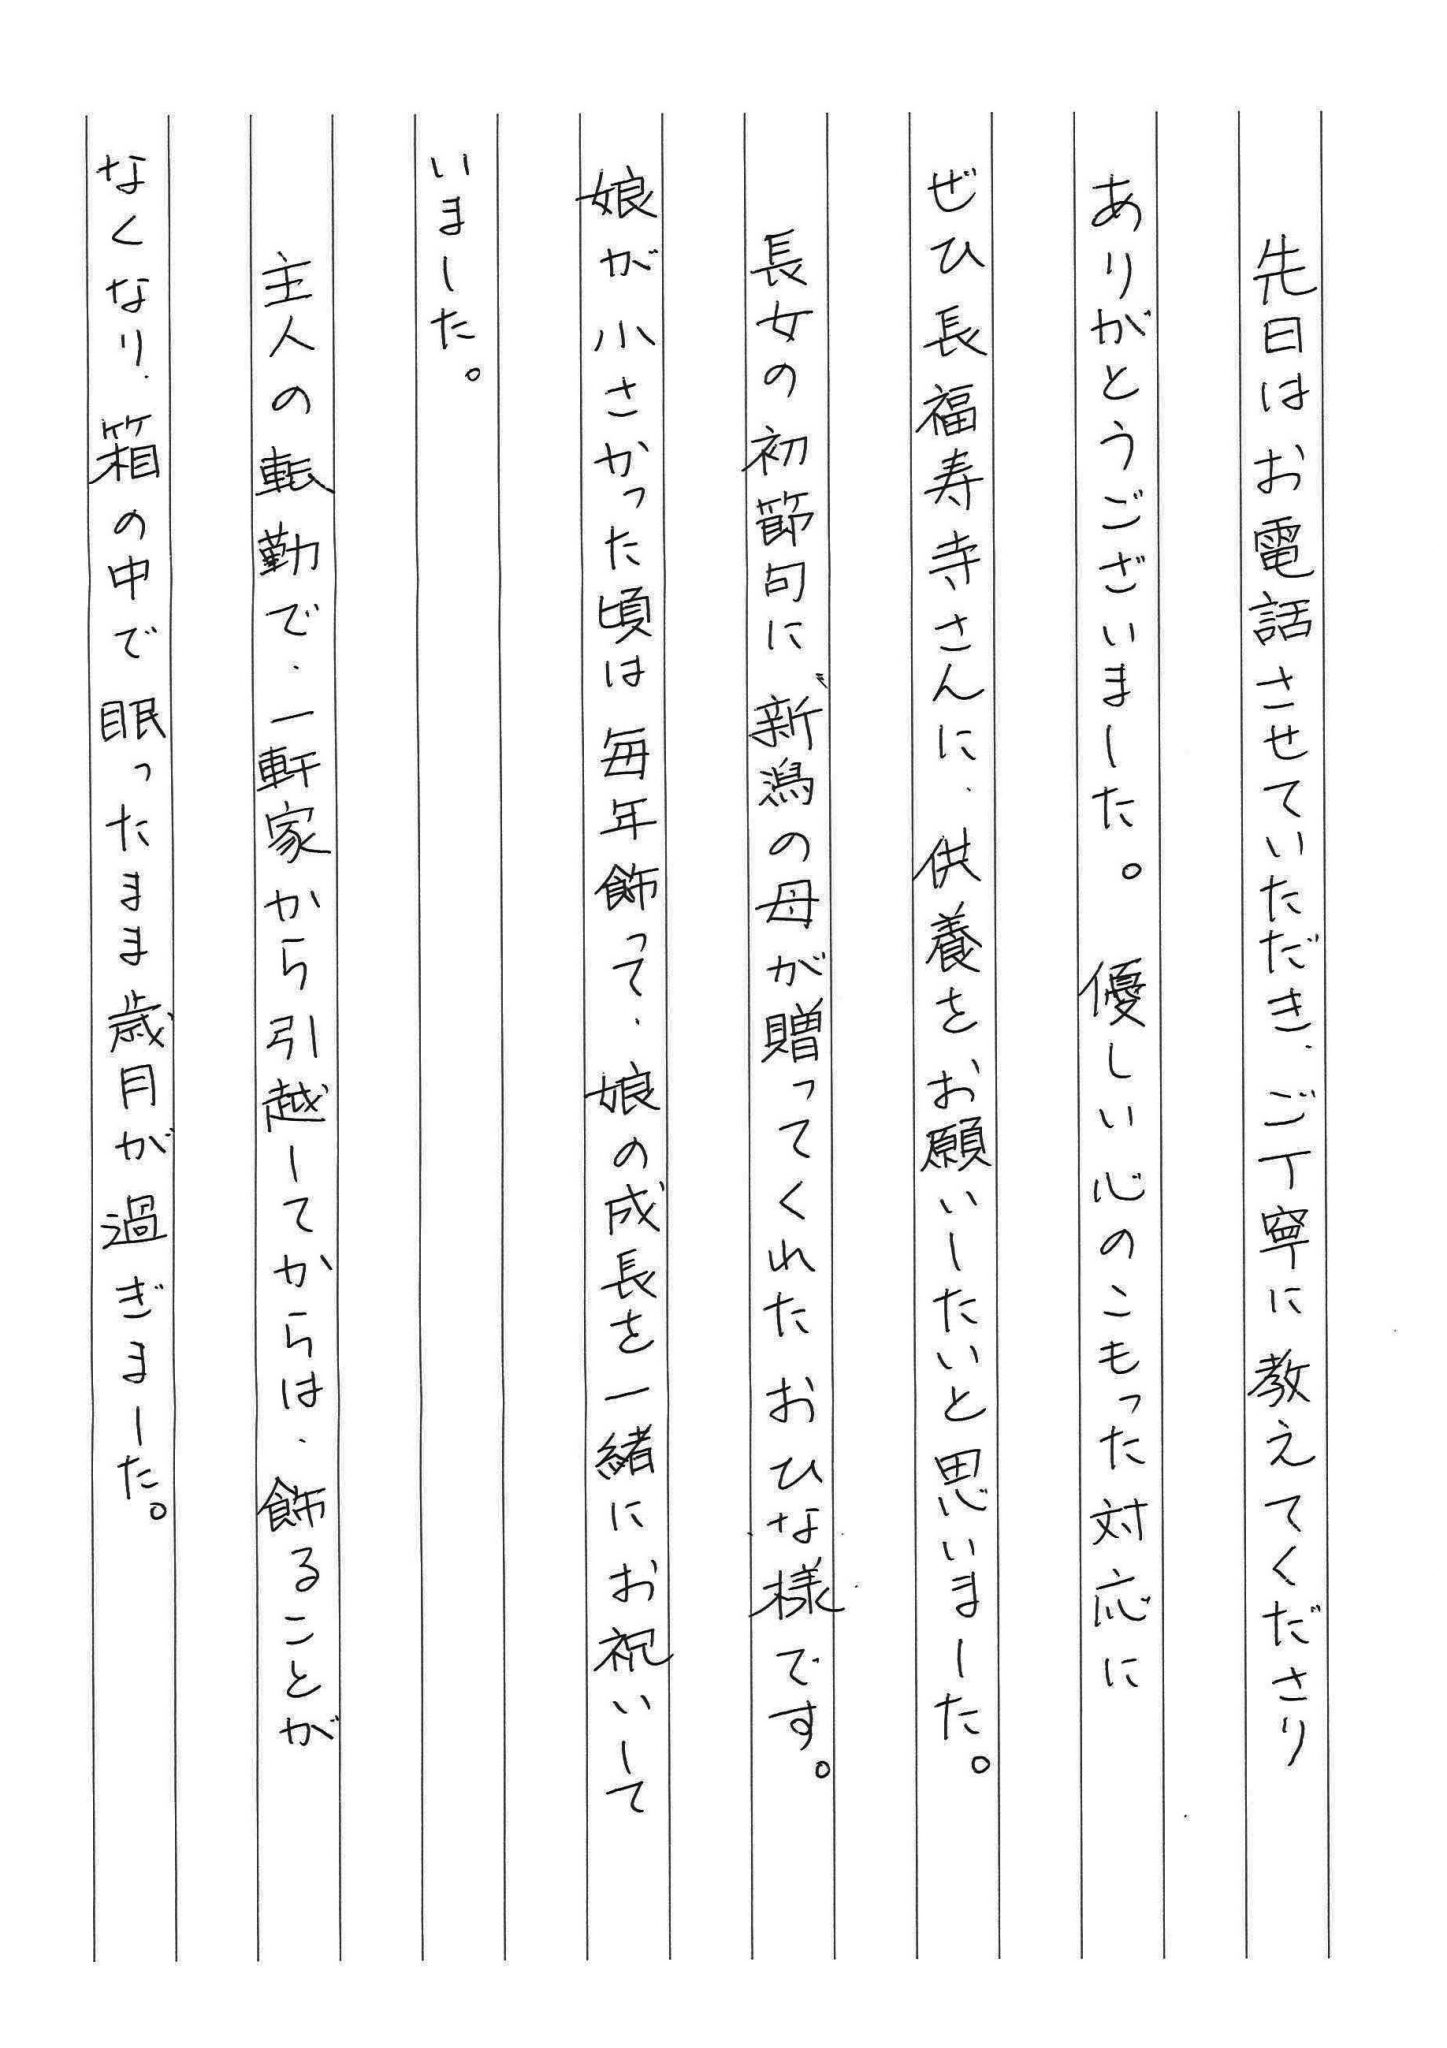 先日はお電話させていただき、ご丁寧に教えてくださり
ありがとうございました。優しい心のこもった対応に
ぜひ長福寿寺さんに、供養をお願いしたいと思いました。
長女の初節句に、新潟の母が贈ってくれたおひな様です。
娘が小さかった頃は毎年飾って、娘の成長を一緒にお祝いして
いました。
主人の転勤で、一軒家から引越してからは、飾ることが
なくなり、箱の中で眠ったまま歳月が過ぎました。